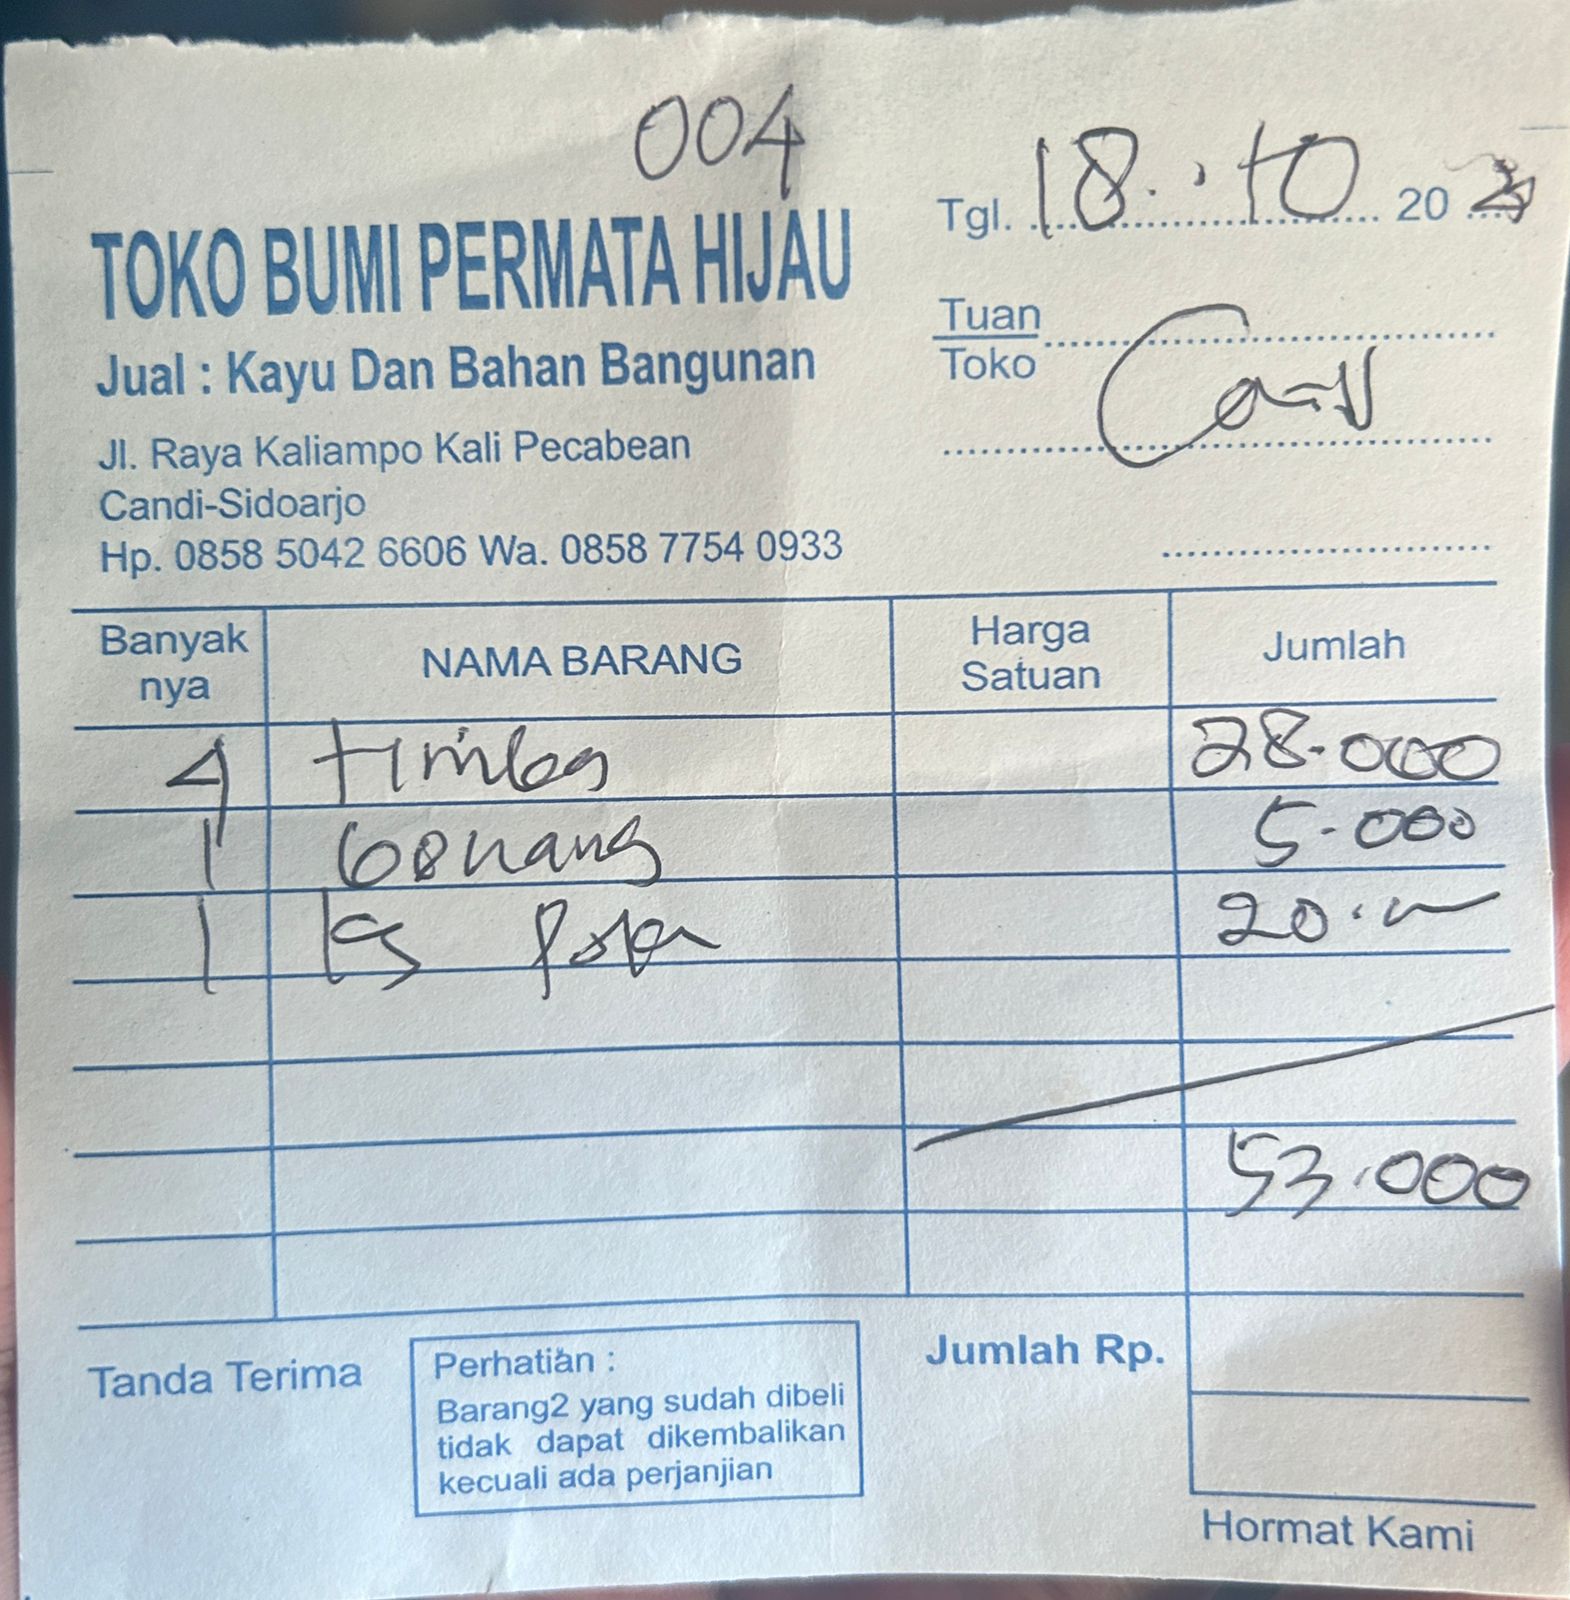 004
Tgl. 18 . 10 20
TOKO BUMI PERMATA HIJAU
Jual : Kayu Dan Bahan Bangunan
Tuan
Toko
Jl. Raya Kaliampo Kali Pecabean
Candi-Sidoarjo
Hp. 0858 5042 6606 Wa. 0858 7754 0933
Banyak nya NAMA BARANG Harga Satuan Jumlah
4 timba 28.000
1 benang 5.000
1 kg 20.
53.000
Tanda Terima
Perhatian :
Barang2 yang sudah dibeli
tidak dapat dikembalikan
kecuali ada perjanjian
Jumlah Rp.
Hormat Kami